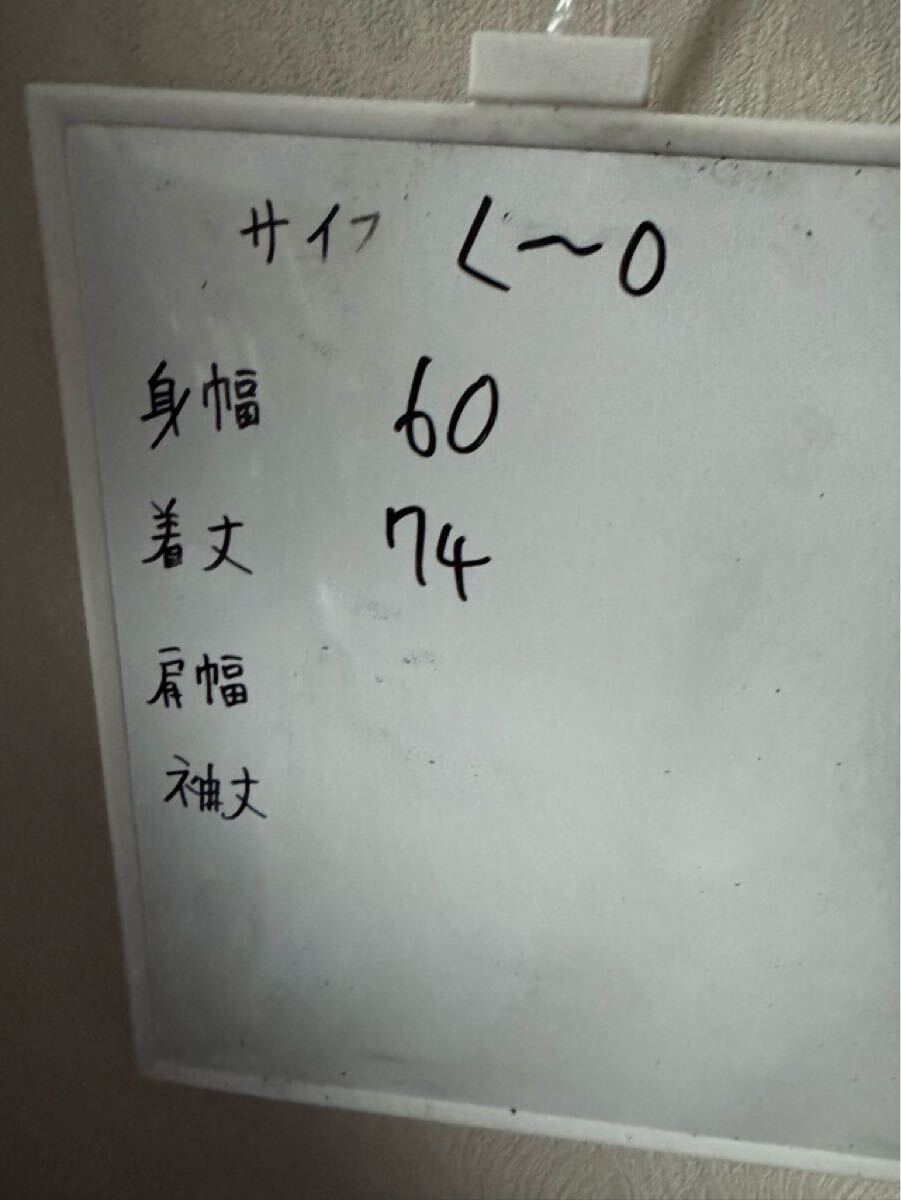 サイズ L〜O
身幅 60
着丈 74
肩幅
袖丈